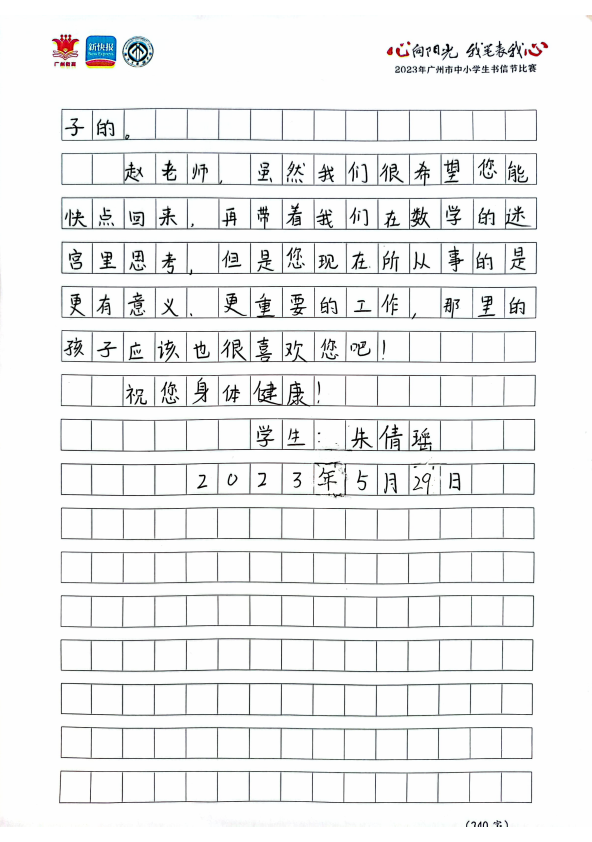 广州教育
新快报
New Express
心向阳光 我笔表我心
2023年广州市中小学生书信节比赛
子的。
赵老师，虽然我们很希望您能
快点回来，再带着我们在数学的迷
宫里思考，但是您现在所从事的是
更有意义、更重要的工作，那里的
孩子应该也很喜欢您吧！
祝您身体健康！
学生：朱倩瑶
2023年5月29日